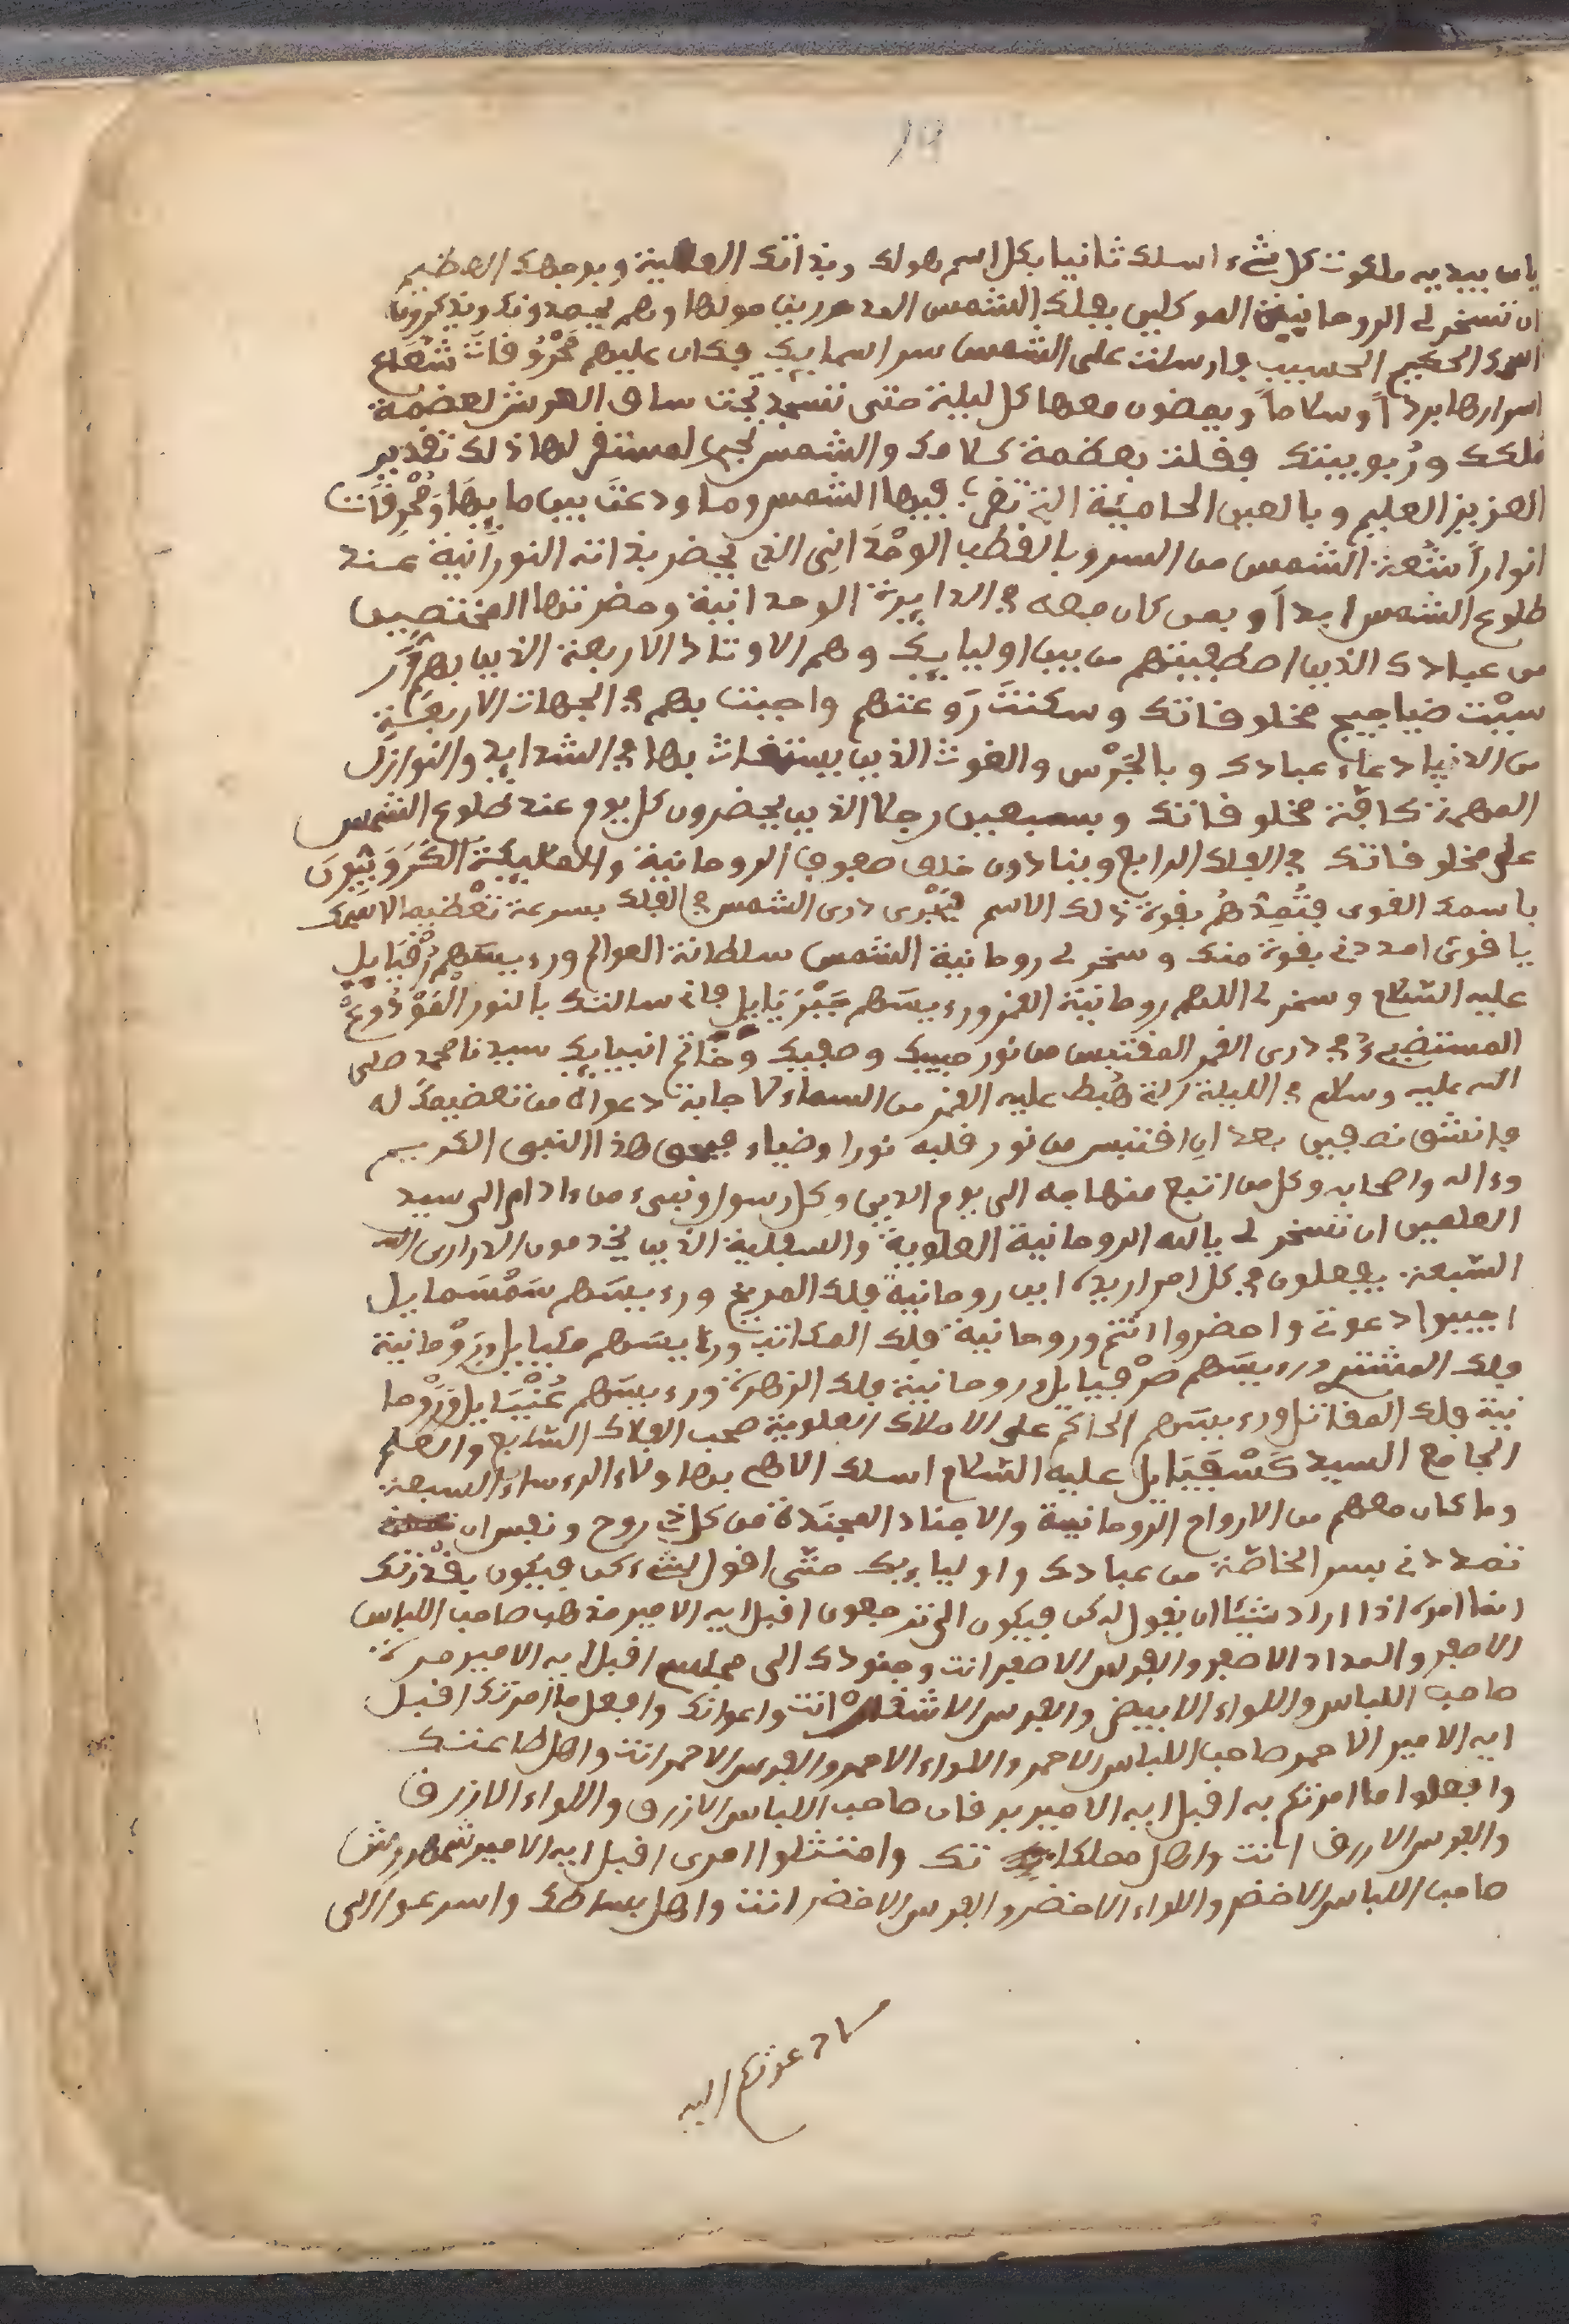 19
يامن بيديه ملكوت كل شيء اسلك ثانيا بكل اسم هولك وبذاتك العلية وبوجهك العظيم
ان تسخر لي الروحانية الموكلين بفلك الشمس المدهررين حولها وهم يحمدونك ويذكرونك
الحكيم الحسيب فارسلت على الشمس سر اسمايك فكان عليهم محروفات شعاع
اسرارها برداً وسلاماً ويمضون معها كل ليلة حتى تسجد تحت ساق العرش لعضمة
ملكك وربوبيتك فقلت بعظمة كلامك والشمس تجري لمستقر لها ذلك تقدير
العزيز العليم وبالعين الحامية التي تغرب فيها الشمس وما ودعت بين مابيها ومحرقات
انوار اشعة الشمس من السر وبالقطب الوحداني الذي يحضر بذاته النورانية عند
طلوع الشمس ابدا وبمن كان معه في الدايرة الوحدانية وحضرتها المختصين
من عبادك الذين اصطفيتهم من بين اوليايك وهم الاوتاد الاربعة الذين بهم
ضياجيج مخلوقاتك وسكنت روعتهم واجبت بهم في الجهات الاربعة
من الدنيا دعاء عبادك وبالجرس والغوث الذين يستغاث بها في الشدايد والنوازل
المهمة كافة مخلوقاتك وبسبعين رجلا الذين يحضرون كل يوم عند طلوع الشمس
على مخلوقاتك في الفلك الرابع وينادون خلف صفوف الروحانية والملايكة الكروبيون
باسمك القوي فتمدهم بقوة ذلك الاسم فيجري دري الشمس في الفلك بسرعة
يا قوي امددني بقوة منك وسخر لي روحانية الشمس سلطانة العوالم ورءيسهم رقيايل
عليه السلام وسخر لي اللهم روحانية القمر ورءيسهم جبريايل فاني سالتك بالنور
المستضيء في دري القمر المقتبس من نور حبيبك وصفيك وخاتم انبيايك سيدنا محمد صلى
الله عليه وسلم في الليلة التي هبط عليه القمر من السماء لاجابة دعواه من تعضيمك له
فانشق نصفين بعد ان اقتبس من نور قلبه نورا وضياء فبحق هذا النبي الكريم
وءاله واصحابه وكل من اتبع منهاجه الى يوم الدين وكل رسول ونبيء من ءادم الى سيد
العلمين ان تسخر لي يا الله الروحانية العلوية والسفلية الذين يخدمون الدراري
السبعة يفعلون في كل امر اريده اين روحانية فلك المريخ ورءيسهم سمسمايل
اجيبوا دعوتي واحضروا انتم وروحانية فلك الكاتب ورءيسهم ميكيايل وروحانية
فلك المشتر ورءيسهم صرفيايل وروحانية فلك الزهرة ورءيسهم عنيايل وروحا
نية فلك المقاتل ورءيسهم الحاكم على الاملاك العلوية صحب الفلك السابع والعلم
الجامع السيد كسفيايل عليه السلام اسلك اللهم بهاولاء الروساء السبعة
وما كان معهم من الارواح الروحانية والاجناد المجندة من كل ذي روح ونفس ان
تمددني بسر الخاصة من عبادك واولياءيك حتى اقول لشيء كن فيكون بقدرتك
انما امره اذا اراد شيئا ان يقول له كن فيكون الى ترجعون اقبل ايه الامير مذهب صاحب اللباس
الاصفر والمداد الاصفر والفرس الاصفر انت وجنودك الى مجلسي اقبل ايه الامير مره
صاحب اللباس واللواء الابيض والفرس الاشقر انت واعوانك وافعل ما امرتك اقبل
ايه الامير الاحمر صاحب اللباس الاحمر واللواء الاحمر والفرس الاحمر انت واهل طاعتك
وافعلوا ما امرتكم به اقبل ايه الامير برقان صاحب اللباس الازرق واللواء الازرق
والفرس الازرق انت واهل مملكا تك وامتثلوا امري اقبل ايه الامير شمهروش
صاحب اللباس الاخضر واللواء الاخضر والفرس الاخضر انت واهل بساطك واسرعوا الى
ما دعوتكم اليه